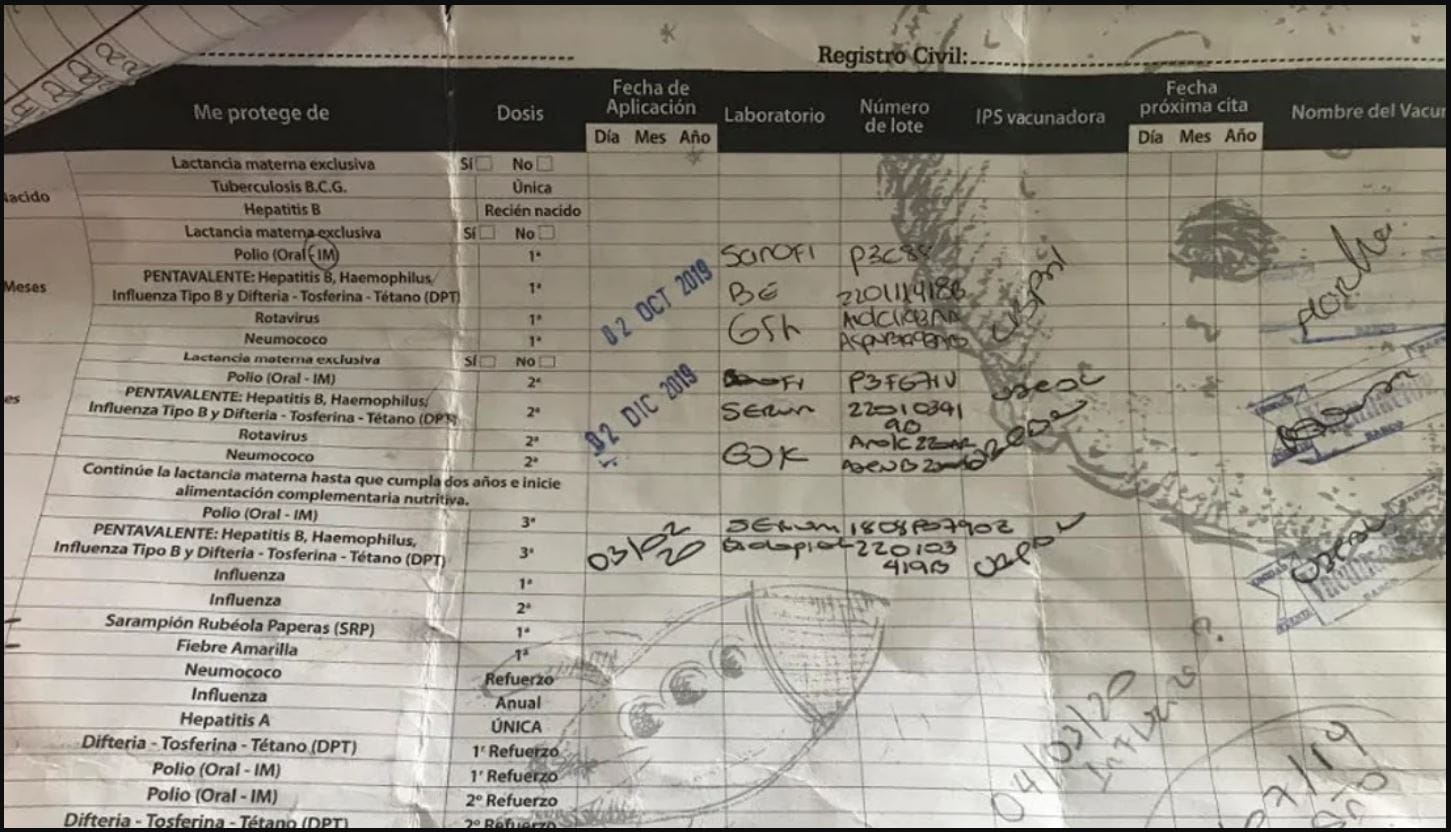 2020
Registro Civil:
Me protege de Dosis Fecha de Aplicación Laboratorio Número de lote IPS vacunadora Fecha próxima cita Nombre del Vacu
Día Mes Año Día Mes Año
Lactancia materna exclusiva Sí No
Nacido Tuberculosis B.C.G. Única
Hepatitis B Recién nacido
Lactancia materna exclusiva Sí No
Polio (Oral - IM) 1ª Sanofi
Meses PENTAVALENTE: Hepatitis B, Haemophilus,
Influenza Tipo B y Difteria - Tosferina - Tétano (DPT) 1ª 02 OCT 2019 BE
Rotavirus 1ª GSK
Neumococo 1ª
Lactancia materna exclusiva Sí No
Polio (Oral - IM) 2ª
es PENTAVALENTE: Hepatitis B, Haemophilus,
Influenza Tipo B y Difteria - Tosferina - Tétano (DPT) 2ª 02 DIC 2019 SERUM 22010391
90
Rotavirus 2ª GSK
Neumococo 2ª
Continúe la lactancia materna hasta que cumpla dos años e inicie
alimentación complementaria nutritiva.
Polio (Oral - IM) 3ª SERUM
PENTAVALENTE: Hepatitis B, Haemophilus,
Influenza Tipo B y Difteria - Tosferina - Tétano (DPT) 3ª 03/02 20 220103
419B
Influenza 1ª
Influenza 2ª
Sarampión Rubéola Paperas (SRP) 1ª
Fiebre Amarilla 1ª
Neumococo Refuerzo
Influenza Anual
Hepatitis A ÚNICA
Difteria - Tosferina - Tétano (DPT) 1ʳ Refuerzo
Polio (Oral - IM) 1ʳ Refuerzo
Polio (Oral - IM) 2º Refuerzo
Difteria - Tosferina - Tétano (DPT) 2º Refuerzo
04/03/20
7/19